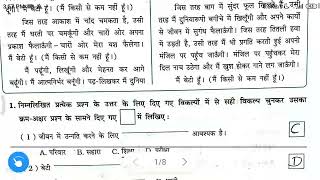 दूँगी। मैं बेटी हूँ। (मैं किसी से कम नहीं हूँ।)
जिस तरह आकाश में चाँद चमकता है, उसी
तरह मैं धरती पर चमकूँगी और चारों ओर अपना
प्रकाश फैलाऊँगी। चारों ओर मेरा यश फैलेगा।
मैं बेटी हूँ। (मैं किसी से कम नहीं हूँ।)
मैं पढूँगी, लिखूँगी और मेहनत कर आगे
बढूँगी। मैं आत्मनिर्भर बनूँगी। पढ़-लिखकर मैं दुनिया
जिस तरह बाग में सुंदर फूल
तरह मैं दुनियारूपी बगीचे में खिलूँगी और अपने कार्यों
से जीवन में सुगंध फैलाऊँगी। जिस तरह तितली हवा
में उड़ती है, उसी तरह मैं भी प्रगति करती हुई अपनी
मंजिल पर पहुँच जाऊँगी। मंजिल पर पहुँचकर मेरा
दिल नाच उठेगा और मैं खुश होकर गाने लग जाऊँगी।
मैं बेटी हूँ। (मैं किसी से कम नहीं हूँ।)
1. निम्नलिखित प्रत्येक प्रश्न के उत्तर के लिए दिए गए विकल्पों में से सही विकल्प चुनकर उसका
क्रम-अक्षर प्रश्न के सामने दिए गए में लिखिए :
( 1 ) जीवन में उन्नति करने के लिए आवश्यक है। C
A. परिवार B. सहारा C. शिक्षा D.
( 2 ) बेटी D
1/8